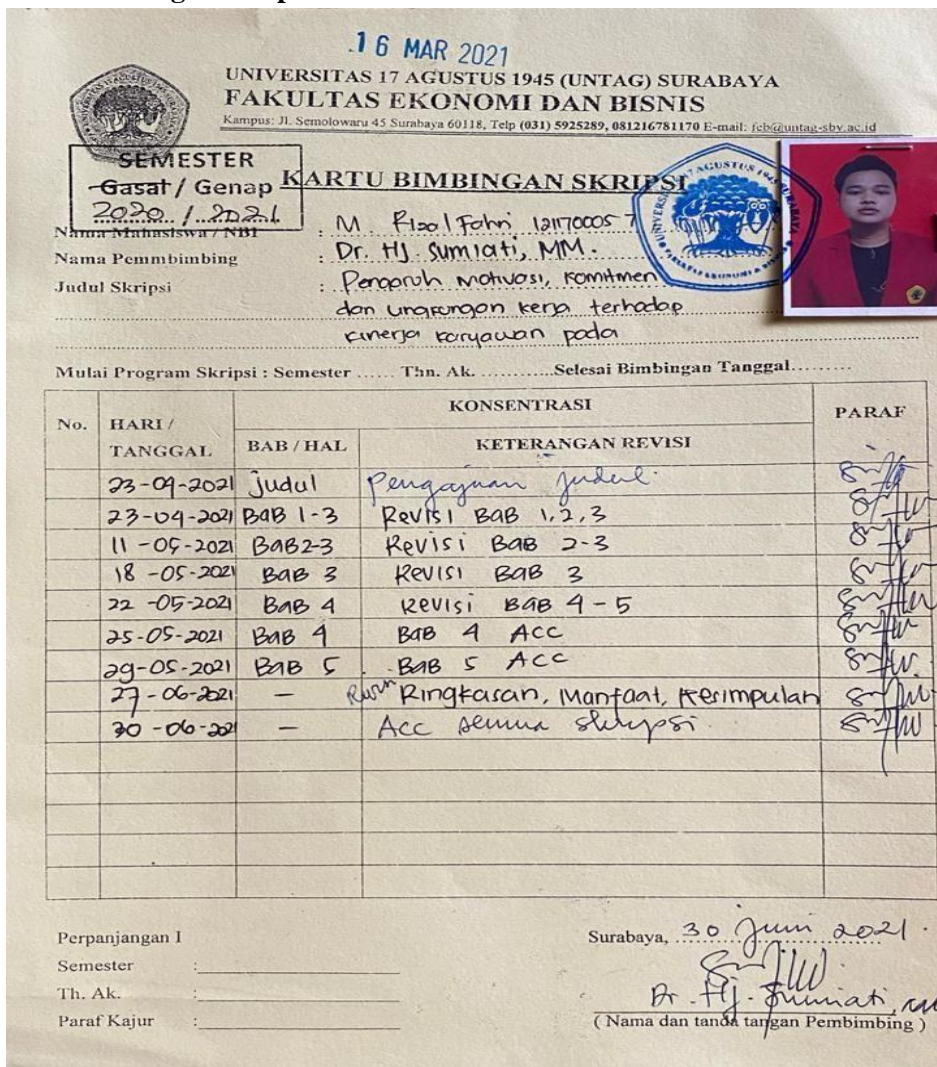 16 MAR 2021
UNIVERSITAS 17 AGUSTUS 1945 (UNTAG) SURABAYA
FAKULTAS EKONOMI DAN BISNIS
Kampus: Jl. Semolowaru 45 Surabaya 60118, Telp (031) 5925289, 081216781170 E-mail: feb@untag-sby.ac.id
SEMESTER
Gasal / Genap
2020 / 2021
KARTU BIMBINGAN SKRIPSI
Nama Mahasiswa / NBI : M. Rizal Fahri 121170005 7
Nama Pemmbimbing : Dr. Hj. Sumiati, MM.
Judul Skripsi : Pengaruh Motivasi, Komitmen
dan Lingkungan kerja terhadap
kinerja karyawan pada
Mulai Program Skripsi : Semester ...... Thn. Ak. ............Selesai Bimbingan Tanggal.........
No. HARI / TANGGAL KONSENTRASI PARAF
BAB / HAL KETERANGAN REVISI
23-04-2021 Judul Pengajuan Judul
23-04-2021 BAB 1-3 Revisi BAB 1,2,3
11-05-2021 BAB 2-3 Revisi BAB 2-3
18-05-2021 BAB 3 Revisi BAB 3
22-05-2021 BAB 4 Revisi BAB 4-5
25-05-2021 BAB 4 BAB 4 ACC
29-05-2021 BAB 5 BAB 5 ACC
27-06-2021 — Ringkasan, Manfaat, Kerimpulan
30-06-2021 — Acc semua skripsi
Perpanjangan I
Semester :
Th. Ak. :
Paraf Kajur :
Surabaya, 30 Juni 2021.
Dr. Hj. Sumiati,
( Nama dan tanda tangan Pembimbing )